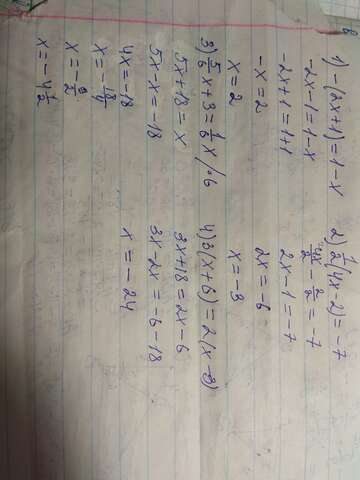 1) -(2x+1)=1-x
-2x-1=1-x
-2x+1=1+1
-x=2
x=2
2) 1/2(4x-2)=-7
4x/2 - 2/2 = -7
2x-1=-7
2x=-6
x=-3
3) 5/6x+3=1/6x /·6
5x+18=x
5x-x=-18
4x=-18
x=-18/4
x=-9/2
x=-4 1/2
4) 3(x+6)=2(x-3)
3x+18=2x-6
3x-2x=-6-18
x=-24